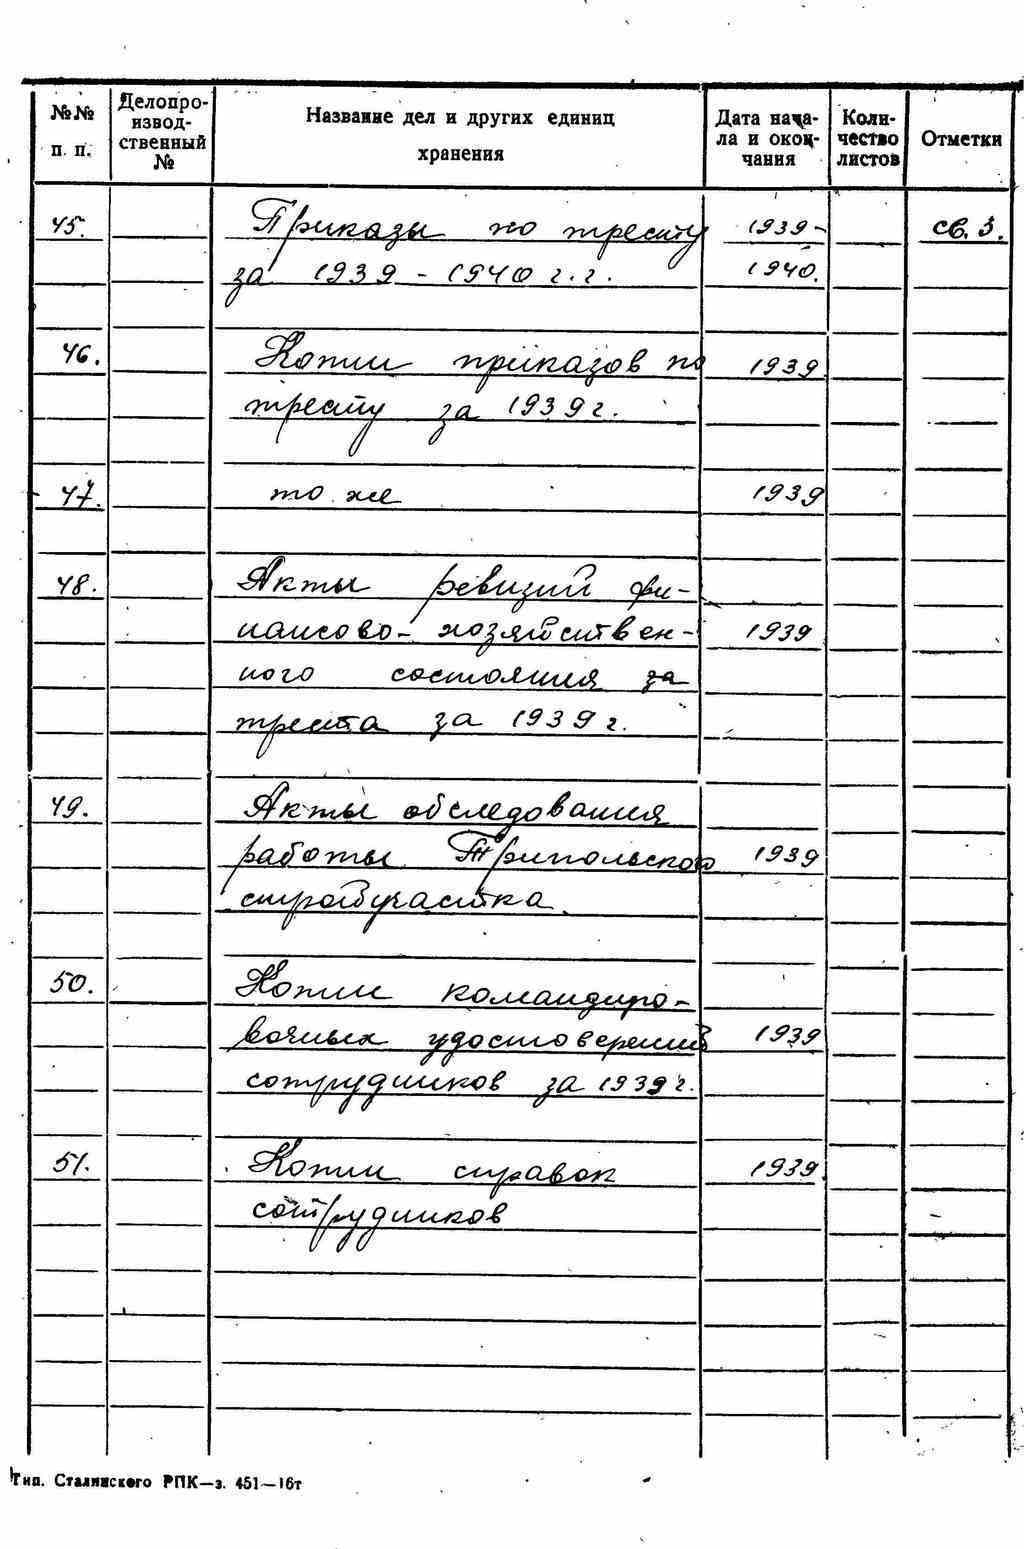 №№ п. п. Делопроизводственный № Название дел и других единиц хранения Дата начала и окончания Количество листов Отметки
45. Приказы по тресту 1939- св. 3.
за 1939 - 1940 г.г. 1940.
46. Копии приказов по 1939
тресту за 1939 г.
47. то же 1939
48. Акты ревизий фи-
нансово- хозяйствен- 1939
ного состояния за
треста за 1939 г.
49. Акты обследования
работы Трипольского 1939
стройучастка.
50. Копии командиро-
вочных удостоверений 1939
сотрудников за 1939 г.
51. Копии справок 1939
сотрудников
Тип. Сталинского РПК—з. 451—16т